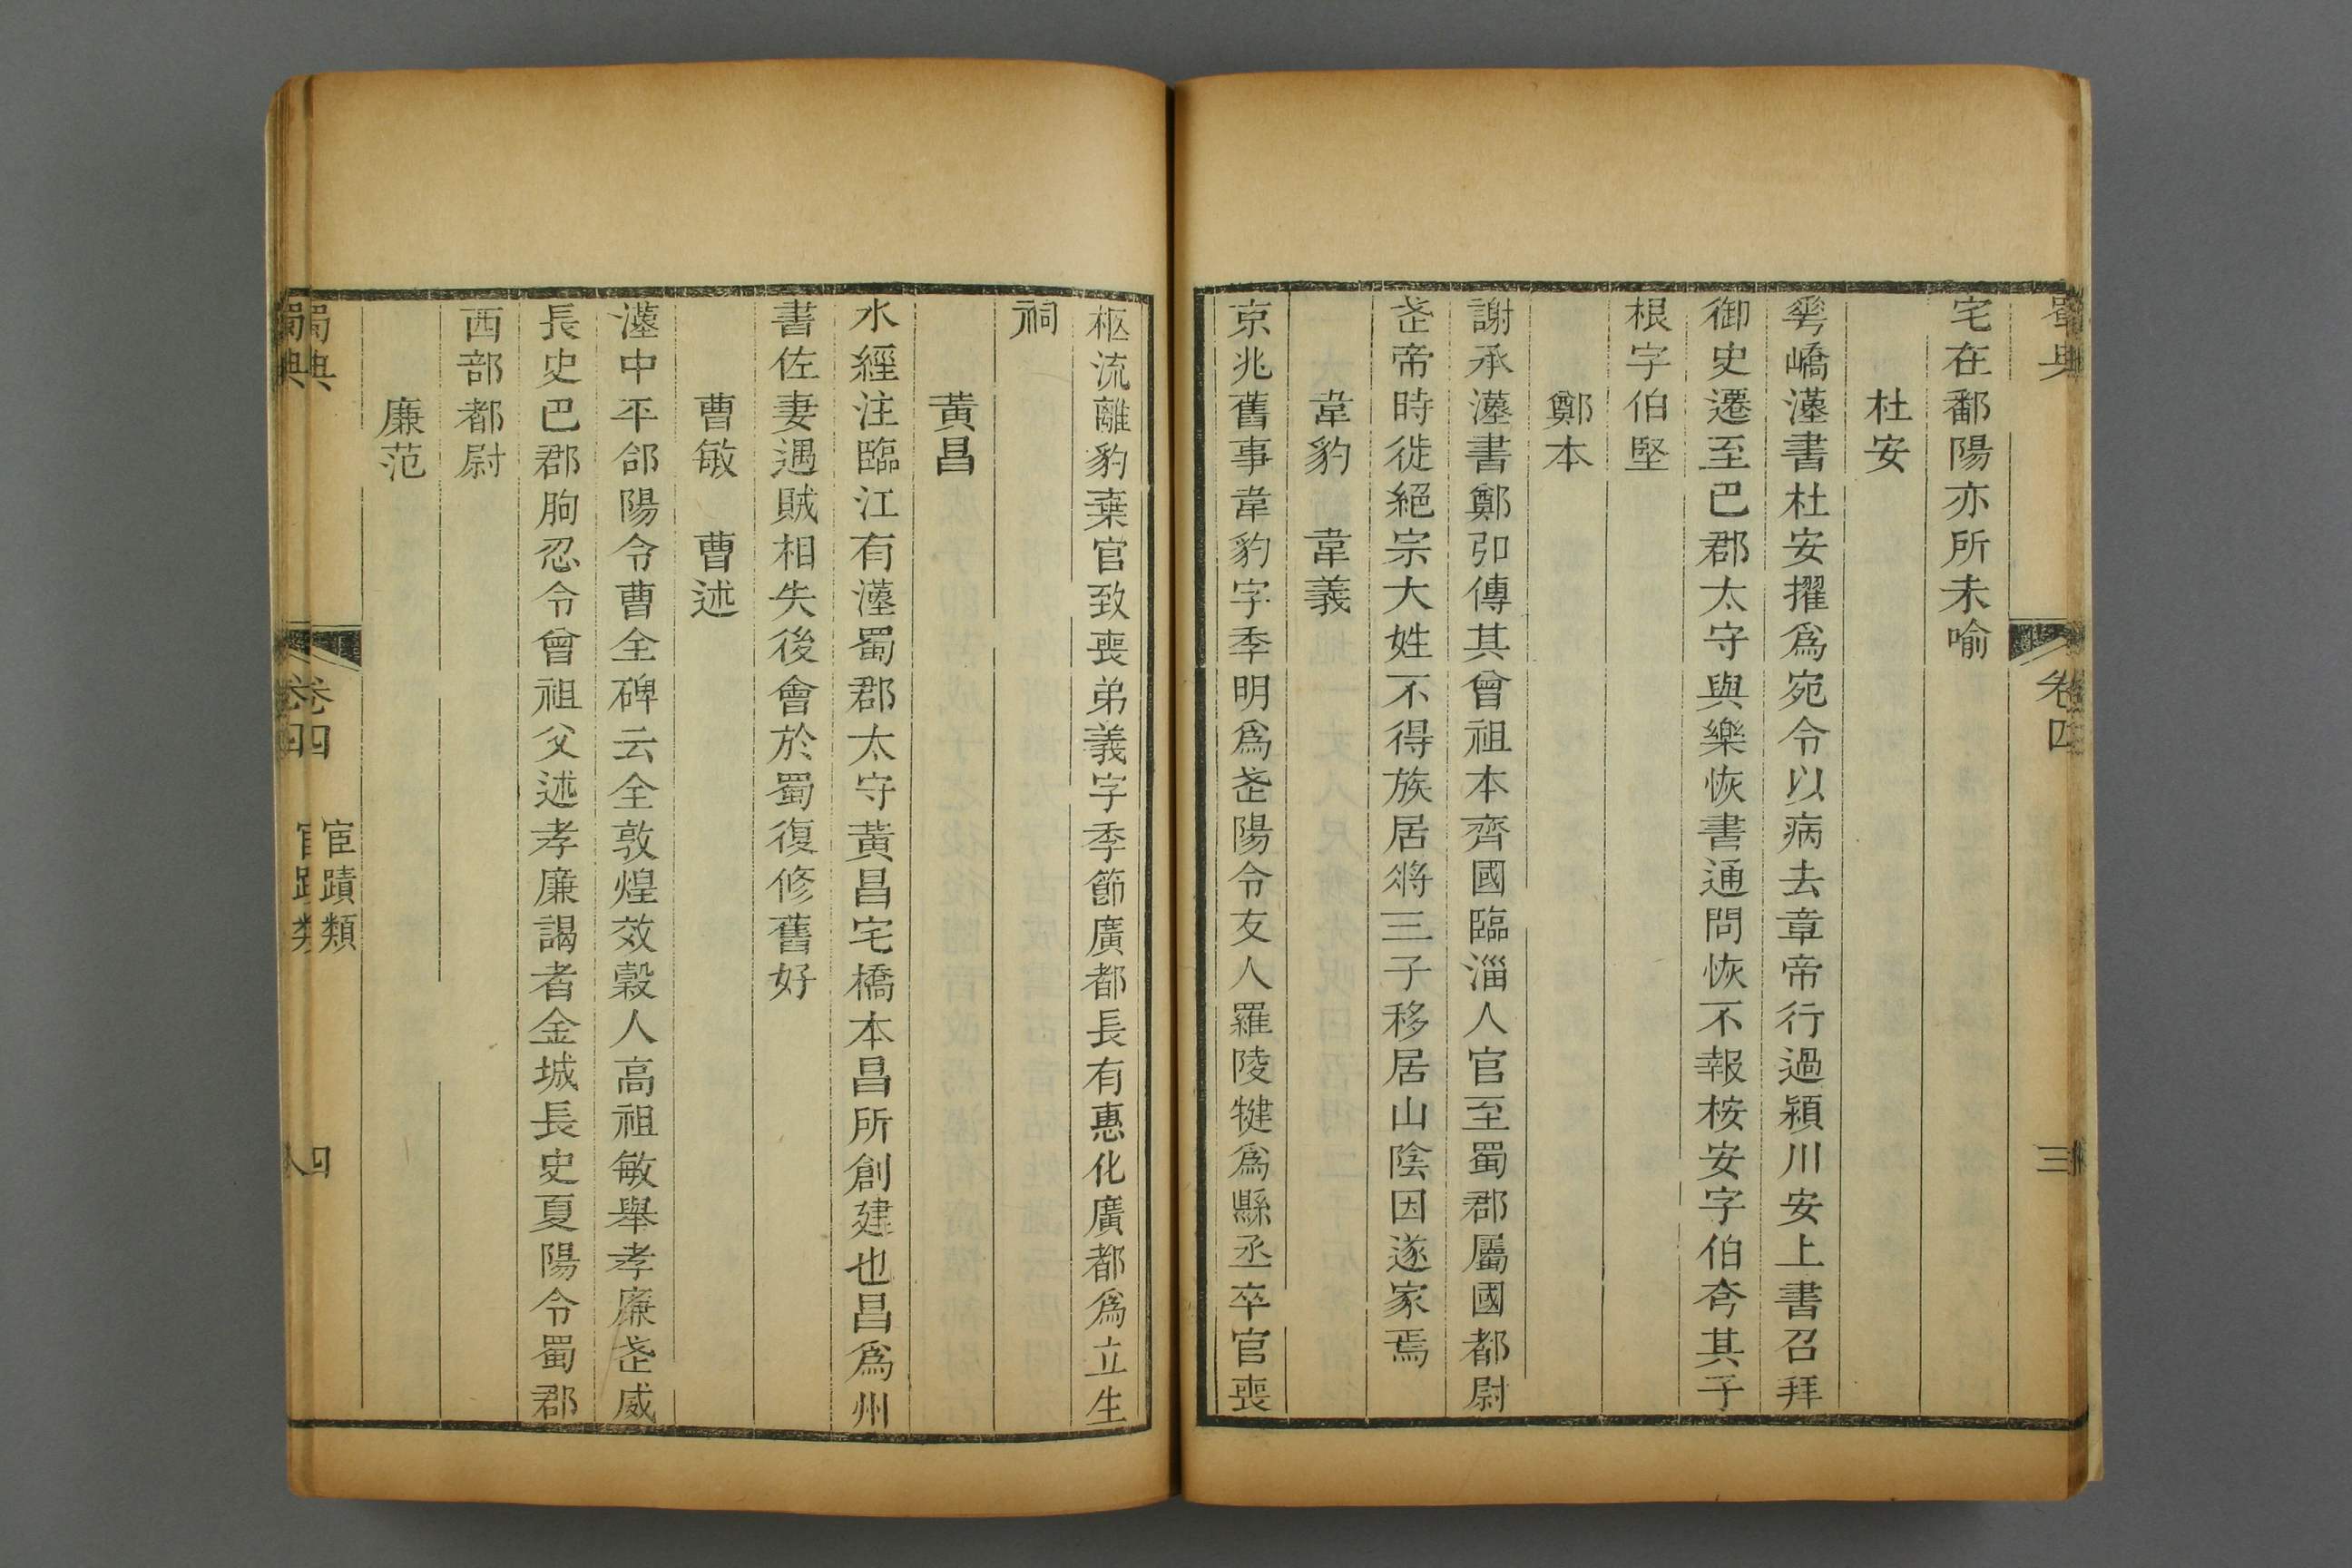 蜀典
卷四
三
宅在鄱陽亦所未喻
杜安
華嶠漢書杜安擢爲宛令以病去章帝行過潁川安上書召拜
御史遷至巴郡太守與樂恢書通問恢不報桉安字伯夸其子
根字伯堅
鄭本
謝承漢書鄭弘傳其曾祖本齊國臨淄人官至蜀郡屬國都尉
武帝時徙絕宗大姓不得族居將三子移居山陰因遂家焉
韋豹　韋義
京兆舊事韋豹字季明爲武陽令友人羅陵犍爲縣丞卒官喪
柩流離豹棄官致喪弟義字季節廣都長有惠化廣都爲立生
祠
黃昌
水經注臨江有漢蜀郡太守黃昌宅橋本昌所創建也昌爲州
書佐妻遇賊相失後會於蜀復修舊好
曹敏　曹述
漢中平郃陽令曹全碑云全敦煌效穀人高祖敏舉孝廉武威
長史巴郡朐忍令曾祖父述孝廉謁者金城長史夏陽令蜀郡
西部都尉
廉范
蜀典
卷四
宦蹟類
四